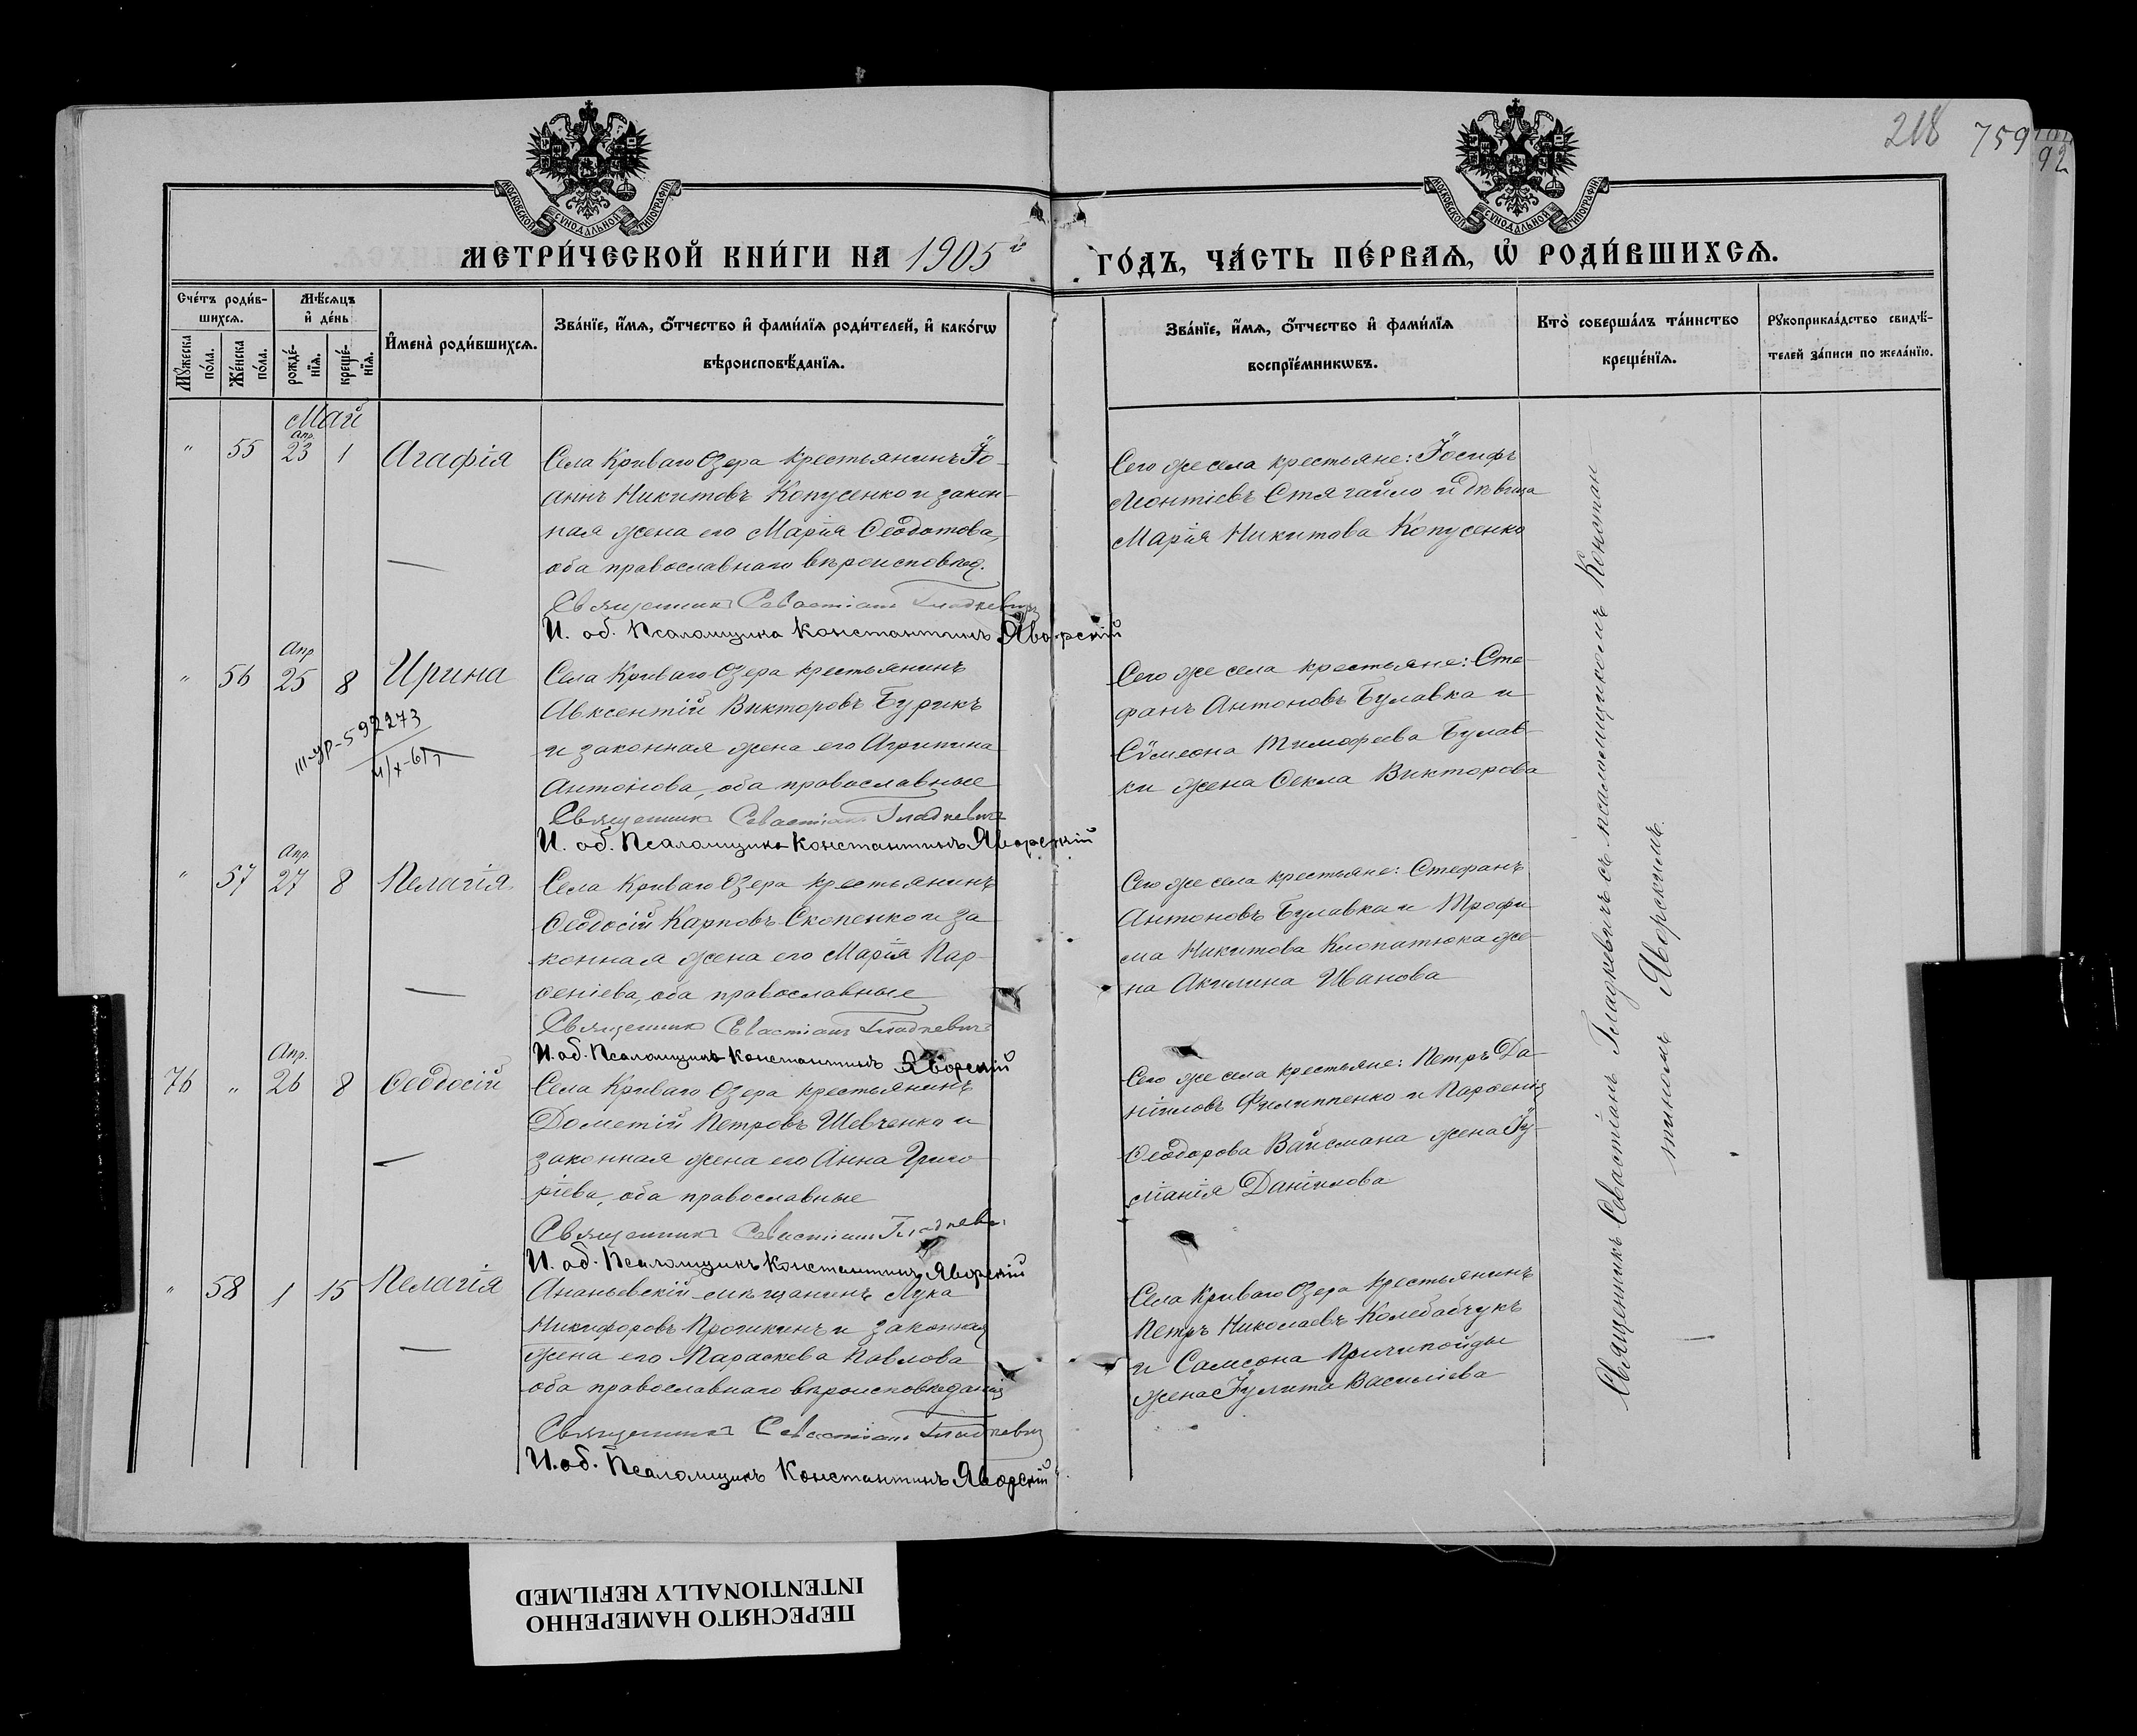 МОСКОВСКОЙ СѴНОДАЛЬНОЙ ТИПОГРАФІИ
МОСКОВСКОЙ СѴНОДАЛЬНОЙ ТИПОГРАФІИ
218 759
92
МЕТРИ́ЧЕСКОЙ КНИ́ГИ НА 1905й
ГО́ДЪ, ЧА́СТЬ ПЕ́РВАѦ, Ѡ РОДИ́ВШИХСѦ.
Сче́тъ роди́в-
шихсѧ.
Мꙋ́жеска по́ла.
Же́нска по́ла.
Мѣ́сѧцъ
и҆ де́нь
рожде́-нїѧ.
креще́-нїѧ.
И҆мена̀ роди́вшихсѧ.
Зва́нїе, и҆́мѧ, ѻ҆́тчество и҆ фами́лїѧ роди́телей, и҆ како́гѡ
вѣроисповѣ́данїѧ.
Зва́нїе, и҆́мѧ, ѻ҆́тчество и҆ фами́лїѧ
воспрїе́мникѡвъ.
Кто̀ соверша́лъ та́инство
креще́нїѧ.
Рꙋкоприкла́дство свидѣ́-
телей за́писи по жела́нїю.
Май
" 55 Апр. 23 1 Агафія
Села Криваго Озера крестьянинъ Іо-
аннъ Никитовъ Копусенко и закон-
ная жена его Марія Ѳеодотова,
оба православнаго вѣроисповѣд.
Священникъ Севастіанъ Гладкевичъ
И. об. Псаломщика Константинъ Яворскій
Сего же села крестьяне: Іосифъ
Леонтіевъ Стягайло и дѣвица
Марія Никитова Копусенко
" 56 Апр 25 8 Ирина
Села Криваго Озера крестьянинъ
Авксентій Викторовъ Бурикъ
и законная жена его Агрипина
Антонова, оба православные
Священникъ Севастіанъ Гладкевичъ
И. об. Псаломщика Константинъ Яворскій
Сего же села крестьяне: Сте-
фанъ Антоновъ Булавка и
Сѵмеона Тимофеева Булав-
ки жена Ѳекла Викторова
" 57 Апр. 27 8 Пелагія
Села Криваго Озера крестьянинъ
Ѳеодосій Карповъ Скопенко и за
конная жена его Марія Пар-
ѳеніева, оба православные
Священникъ Севастіанъ Гладкевичъ
И. об. Псаломщика Константинъ Яворскій
Сего же села крестьяне: Стефанъ
Антоновъ Булавка и Трофи
ма Никитова Клопатюка же-
на Акилина Иванова
76 " Апр. 26 8 Ѳеодосій
Села Криваго Озера крестьянинъ
Дометій Петровъ Шевченко и
законная жена его Анна Григо
ріева, оба православные
Священникъ Севастіанъ Гладкевич
И. об. Псаломщикъ Константинъ Яворскій
Сего же села крестьяне: Петръ Да-
ніиловъ Филиппенко и Парѳенія
Ѳеодорова Вайсмана жена Іу-
ліанія Даніилова
" 58 1 15 Пелагія
Ананьевскій мѣщанинъ Лука
Никифоровъ Прошкинъ и законная
жена его Параскева Павлова
оба православнаго вѣроисповѣданія
Священникъ Севастіанъ Гладкевичъ
И. об. Псаломщикъ Константинъ Яворскій
Села Криваго Озера крестьянинъ
Петръ Николаевъ Колебабчукъ
и Самсона Причипойды
жена Іулита Василіева
Священникъ Севастіанъ Гладкевичъ съ псаломщикомъ Констан-
тиномъ Яворскимъ.
ПЕРЕСНЯТО НАМЕРЕННО
INTENTIONALLY REFILMED